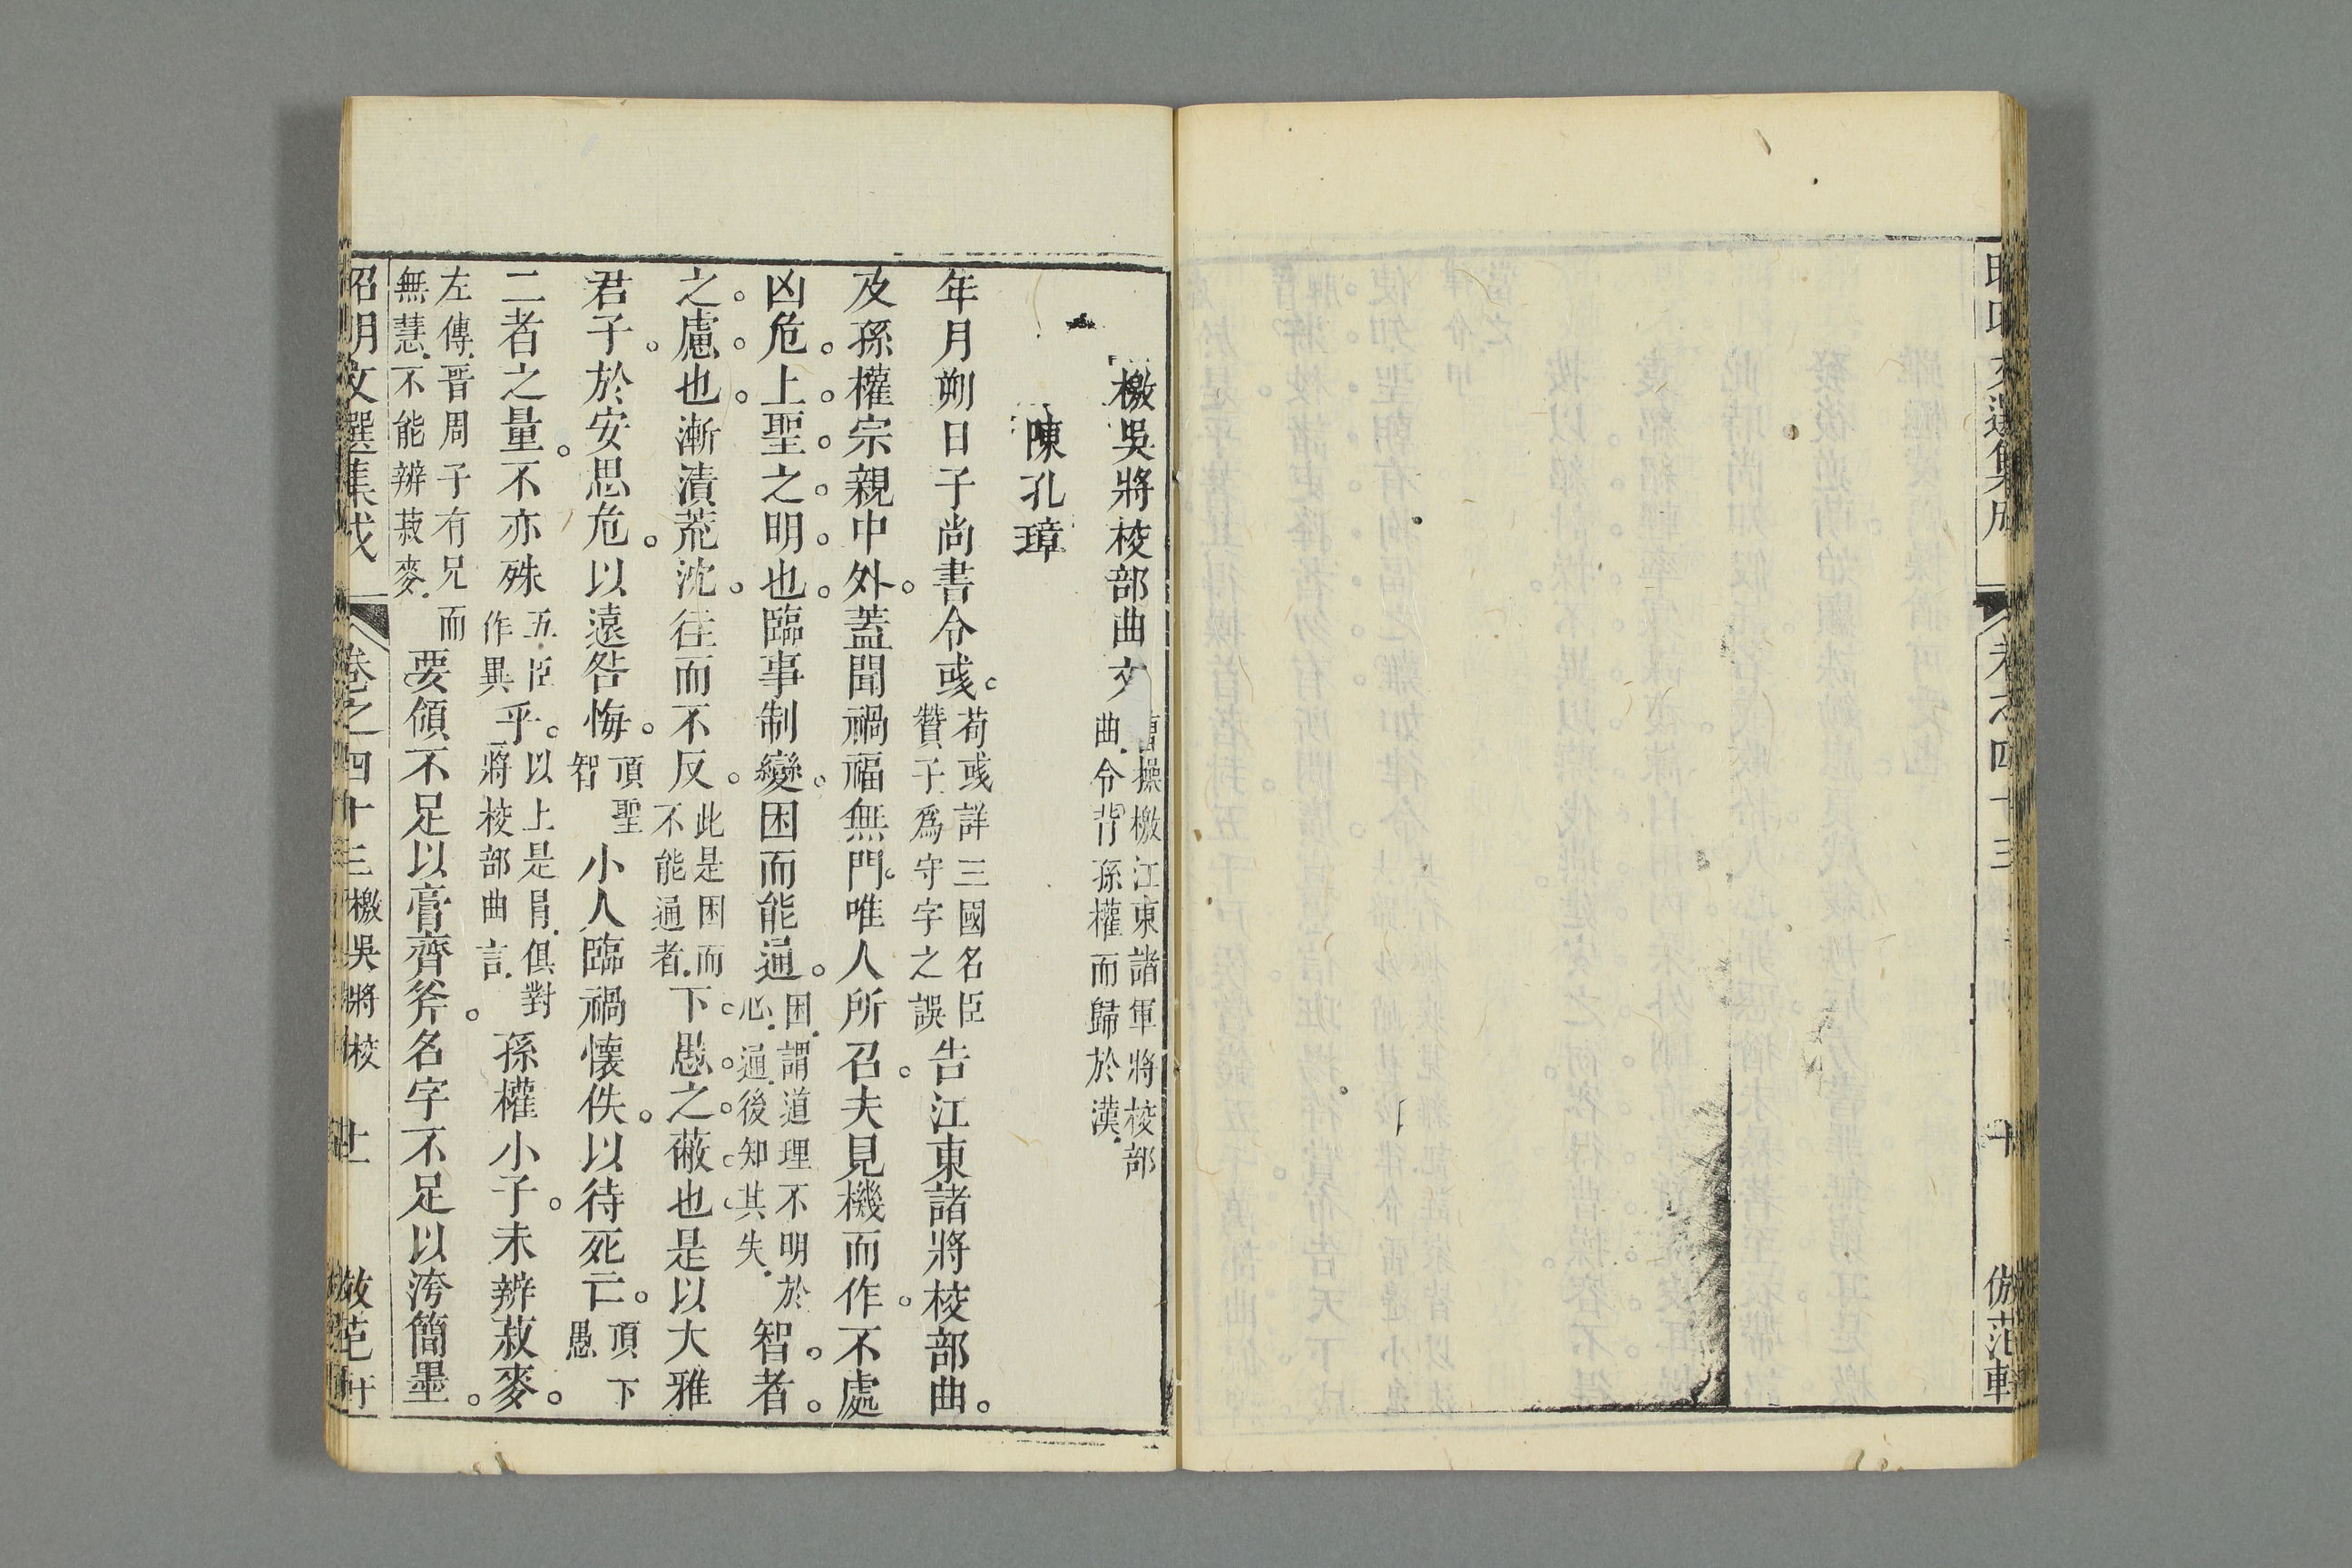 昭明文選集成 卷之四十三 十 倣范軒
檄吳將校部曲文 曹操檄江東諸軍將校部
曲令背孫權而歸於漢
陳孔璋
年月朔日子尚書令彧。荀彧詳三國名臣
贊子爲守字之誤 告江東諸將校部曲。
及孫權宗親中外。蓋聞禍福無門。唯人所召。夫見機而作。不處
凶危。上聖之明也。臨事制變。困而能通。困謂道理不明於
心通後知其失 智者。
之慮也。漸漬荒沈。往而不反。此是困而
不能通者 下愚之蔽也。是以大雅
君子。於安思危。以遠咎悔。頂聖
智 小人臨禍懷佚。以待死亡。頂下
愚
二者之量。不亦殊 五臣
作異 乎。以上是冐俱對
將校部曲言 孫權小子。未辨菽麥。
左傳晉周子有兄而
無慧不能辨菽麥 要領不足以膏齊斧。名字不足以洿簡墨。
昭明文選集成 卷之四十三 檄吳將校 十一